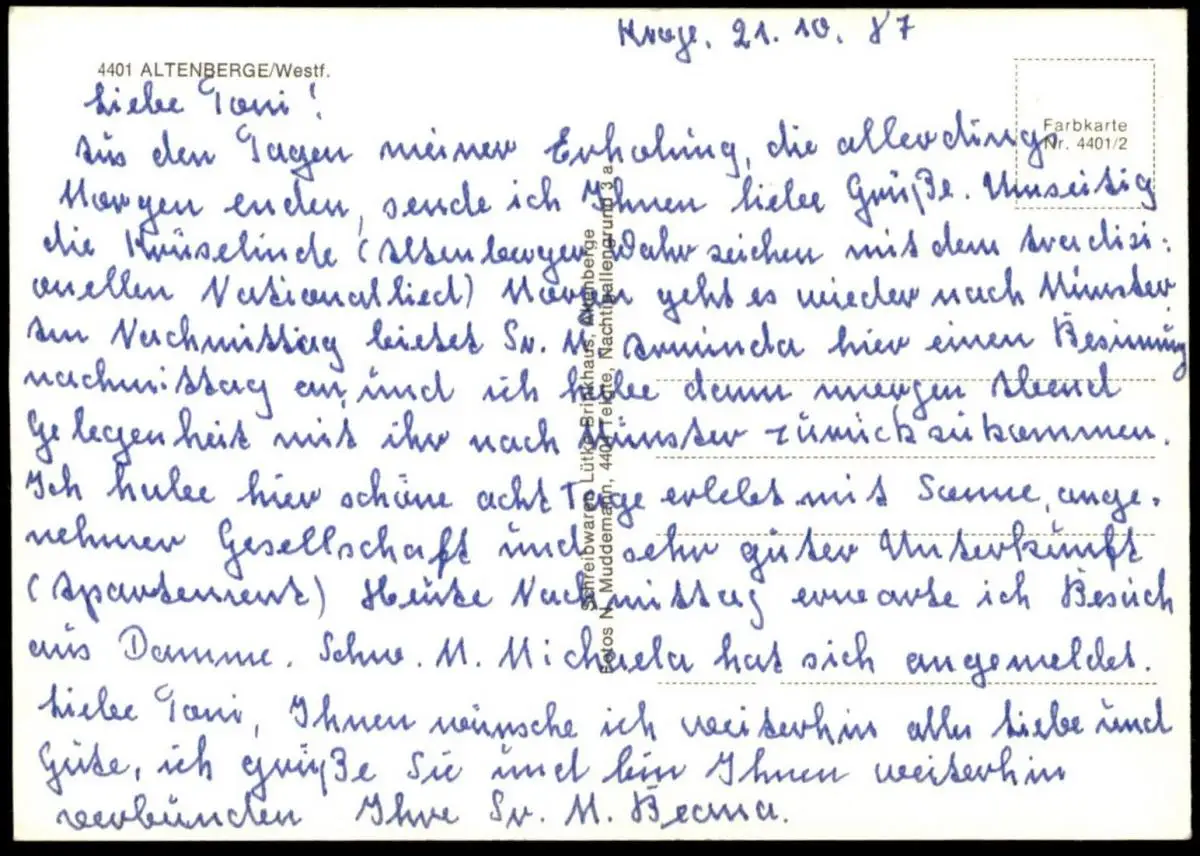 Kroge, 21.10.87
4401 ALTENBERGE/Westf.
Farbkarte
Nr. 4401/2
Liebe Toni!
Aus den Tagen meiner Erholung, die allerdings
Morgen enden, sende ich Ihnen liebe Grüße. Umseitig
die Krüselinde (Altenberger Wahrzeichen mit dem tradizi=
onellen Nationallied) Morgen geht es wieder nach Münster
Am Nachmittag bietet Sr. M. Arminda hier einen Besinnung
nachmittag an, und ich habe dann morgen Abend
Gelegenheit mit ihr nach Münster zurückzukommen.
Ich habe hier schöne acht Tage erlebt mit Sonne, ange-
nehmer Gesellschaft und sehr guter Unterkunft
(Apartement) Heute Nachmittag erwarte ich Besuch
aus Damme. Schw. M. Michaela hat sich angemeldet.
Liebe Toni, Ihnen wünsche ich weiterhin alles Liebe und
Gute, ich grüße Sie und bin Ihnen weiterhin
verbunden Ihre Sr. M.
Schreibwaren Lütke Brinkhaus, Altenberge
Fotos N. Muddemann, 4404 Telgte, Nachtigallengrund 3 a